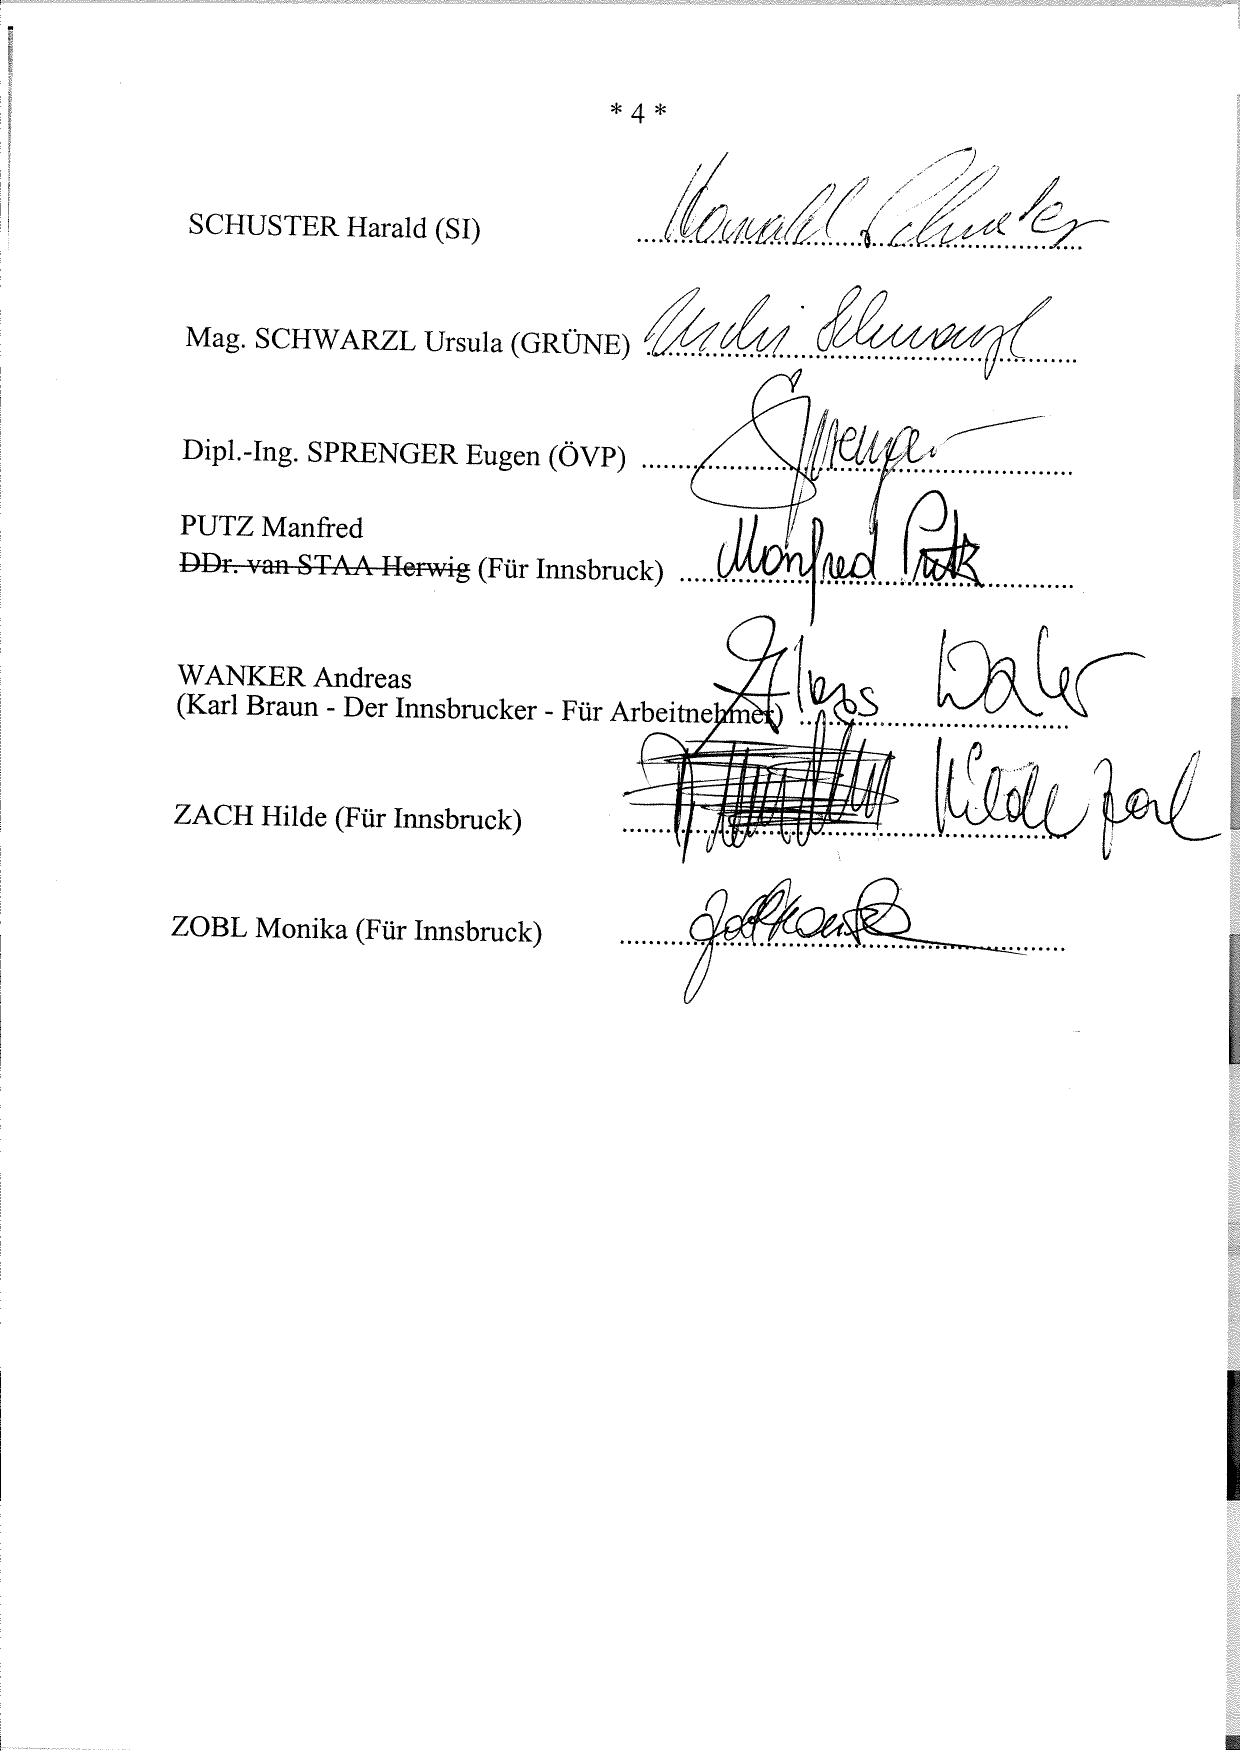 * 4 *
SCHUSTER Harald (SI) ........ Harald Schuster
Mag. SCHWARZL Ursula (GRÜNE) ........ Uschi Schwarzl
Dipl.-Ing. SPRENGER Eugen (ÖVP) ........ Sprenger
PUTZ Manfred
DDr. van STAA Herwig (Für Innsbruck) ........ Manfred Putz
WANKER Andreas
(Karl Braun - Der Innsbrucker - Für Arbeitnehmer) ........
ZACH Hilde (Für Innsbruck) ........ Hilde Zach
ZOBL Monika (Für Innsbruck) ........